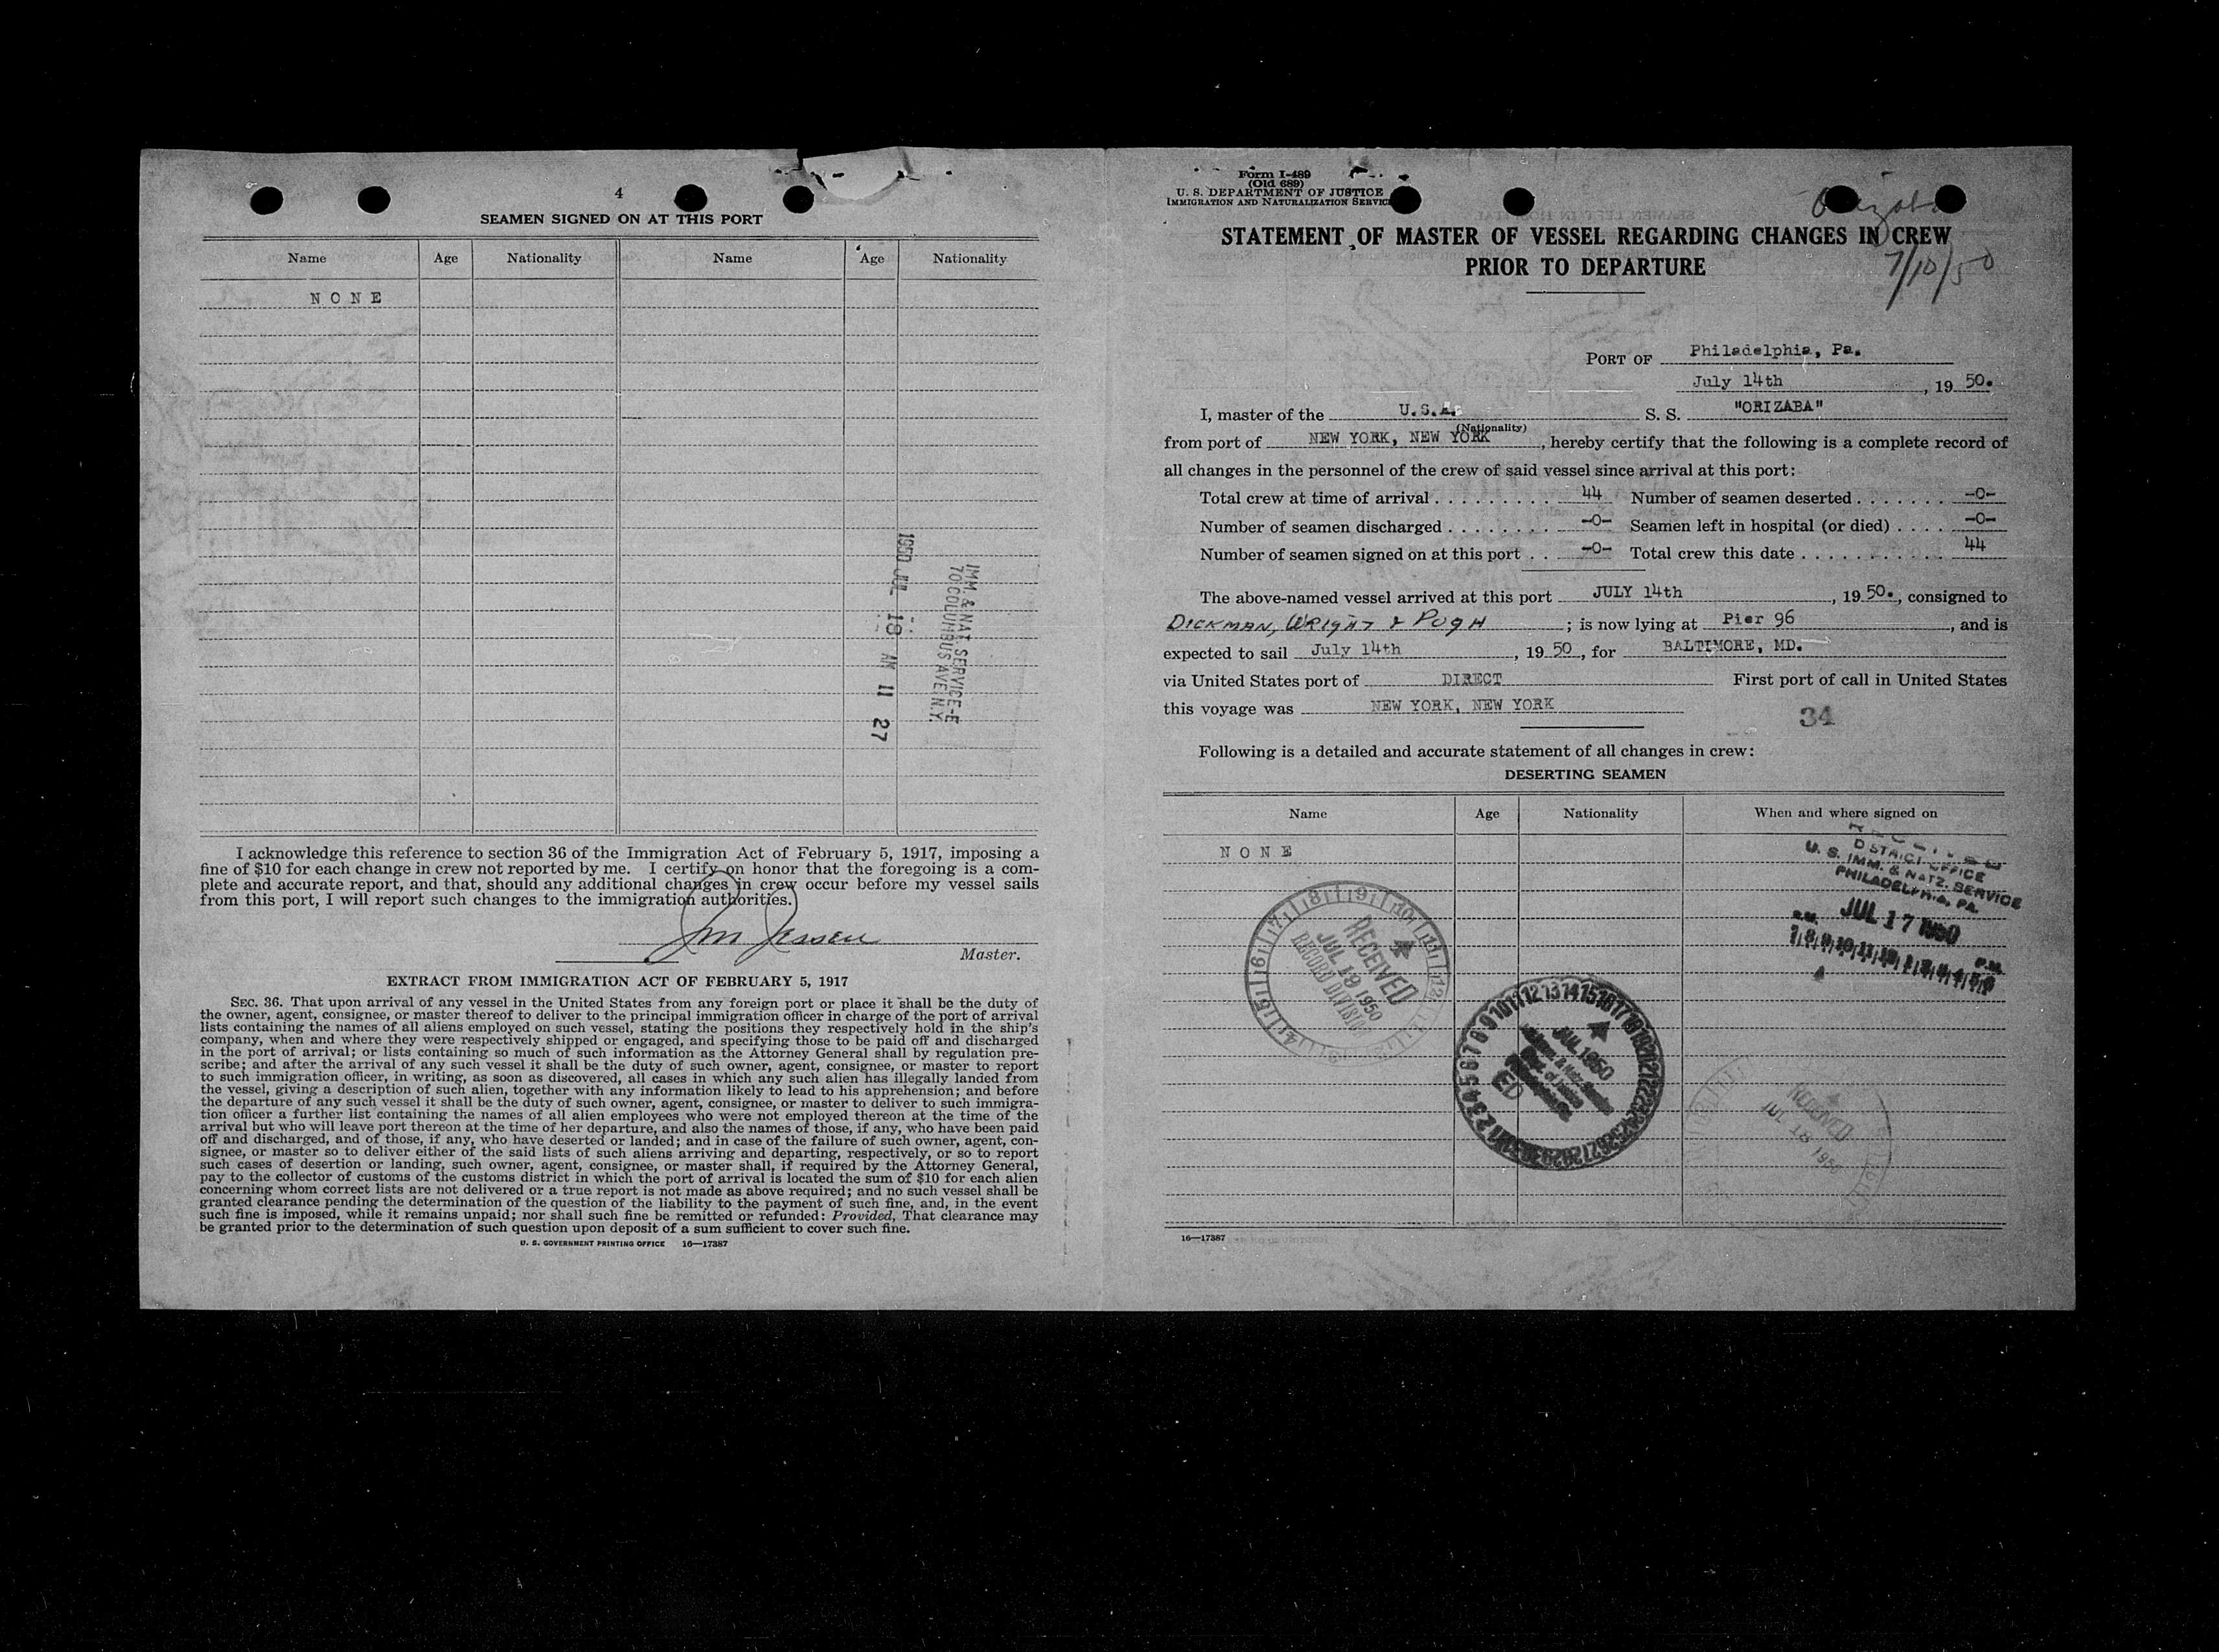 4
SEAMEN SIGNED ON AT THIS PORT
Name Age Nationality Name Age Nationality
NONE
1950 JUL 18 AM 11 27
IMM. & NAT. SERVICE-E
70 COLUMBUS AVE N.Y.
I acknowledge this reference to section 36 of the Immigration Act of February 5, 1917, imposing a
fine of $10 for each change in crew not reported by me. I certify on honor that the foregoing is a com-
plete and accurate report, and that, should any additional changes in crew occur before my vessel sails
from this port, I will report such changes to the immigration authorities.
Jessen
Master.
EXTRACT FROM IMMIGRATION ACT OF FEBRUARY 5, 1917
SEC. 36. That upon arrival of any vessel in the United States from any foreign port or place it shall be the duty of
the owner, agent, consignee, or master thereof to deliver to the principal immigration officer in charge of the port of arrival
lists containing the names of all aliens employed on such vessel, stating the positions they respectively hold in the ship's
company, when and where they were respectively shipped or engaged, and specifying those to be paid off and discharged
in the port of arrival; or lists containing so much of such information as the Attorney General shall by regulation pre-
scribe; and after the arrival of any such vessel it shall be the duty of such owner, agent, consignee, or master to report
to such immigration officer, in writing, as soon as discovered, all cases in which any such alien has illegally landed from
the vessel, giving a description of such alien, together with any information likely to lead to his apprehension; and before
the departure of any such vessel it shall be the duty of such owner, agent, consignee, or master to deliver to such immigra-
tion officer a further list containing the names of all alien employees who were not employed thereon at the time of the
arrival but who will leave port thereon at the time of her departure, and also the names of those, if any, who have been paid
off and discharged, and of those, if any, who have deserted or landed; and in case of the failure of such owner, agent, con-
signee, or master so to deliver either of the said lists of such aliens arriving and departing, respectively, or so to report
such cases of desertion or landing, such owner, agent, consignee, or master shall, if required by the Attorney General,
pay to the collector of customs of the customs district in which the port of arrival is located the sum of $10 for each alien
concerning whom correct lists are not delivered or a true report is not made as above required; and no such vessel shall be
granted clearance pending the determination of the question of the liability to the payment of such fine, and, in the event
such fine is imposed, while it remains unpaid; nor shall such fine be remitted or refunded: Provided, That clearance may
be granted prior to the determination of such question upon deposit of a sum sufficient to cover such fine.
U. S. GOVERNMENT PRINTING OFFICE 16—17387
Form I-489
(Old 689)
U. S. DEPARTMENT OF JUSTICE
IMMIGRATION AND NATURALIZATION SERVICE
Orizaba
7/10/50
STATEMENT OF MASTER OF VESSEL REGARDING CHANGES IN CREW
PRIOR TO DEPARTURE
PORT OF Philadelphia, Pa.
July 14th, 19 50.
I, master of the U.S.A. S. S. "ORIZABA"
(Nationality)
from port of NEW YORK, NEW YORK, hereby certify that the following is a complete record of
all changes in the personnel of the crew of said vessel since arrival at this port:
Total crew at time of arrival . . . . . . . . . . 44 Number of seamen deserted . . . . . . . -0-
Number of seamen discharged . . . . . . . . . -0- Seamen left in hospital (or died) . . . . -0-
Number of seamen signed on at this port . . -0- Total crew this date . . . . . . . . . . . 44
The above-named vessel arrived at this port JULY 14th, 19 50., consigned to
DICKMAN, WRIGHT & PUGH; is now lying at Pier 96, and is
expected to sail July 14th, 19 50, for BALTIMORE, MD.
via United States port of DIRECT First port of call in United States
this voyage was NEW YORK, NEW YORK
34
Following is a detailed and accurate statement of all changes in crew:
DESERTING SEAMEN
Name Age Nationality When and where signed on
NONE
RECEIVED
DISTRICT OFFICE
U. S. IMM. & NATZ. SERVICE
PHILADELPHIA, PA.
JUL 17 1950
A.M. P.M.
7 8 9 10 11 12 1 2 3 4 5 6
RECEIVED
JUL 19 1950
RECORD DIVISION
JUL 1950
RECEIVED
JUL 18 1950
16—17387